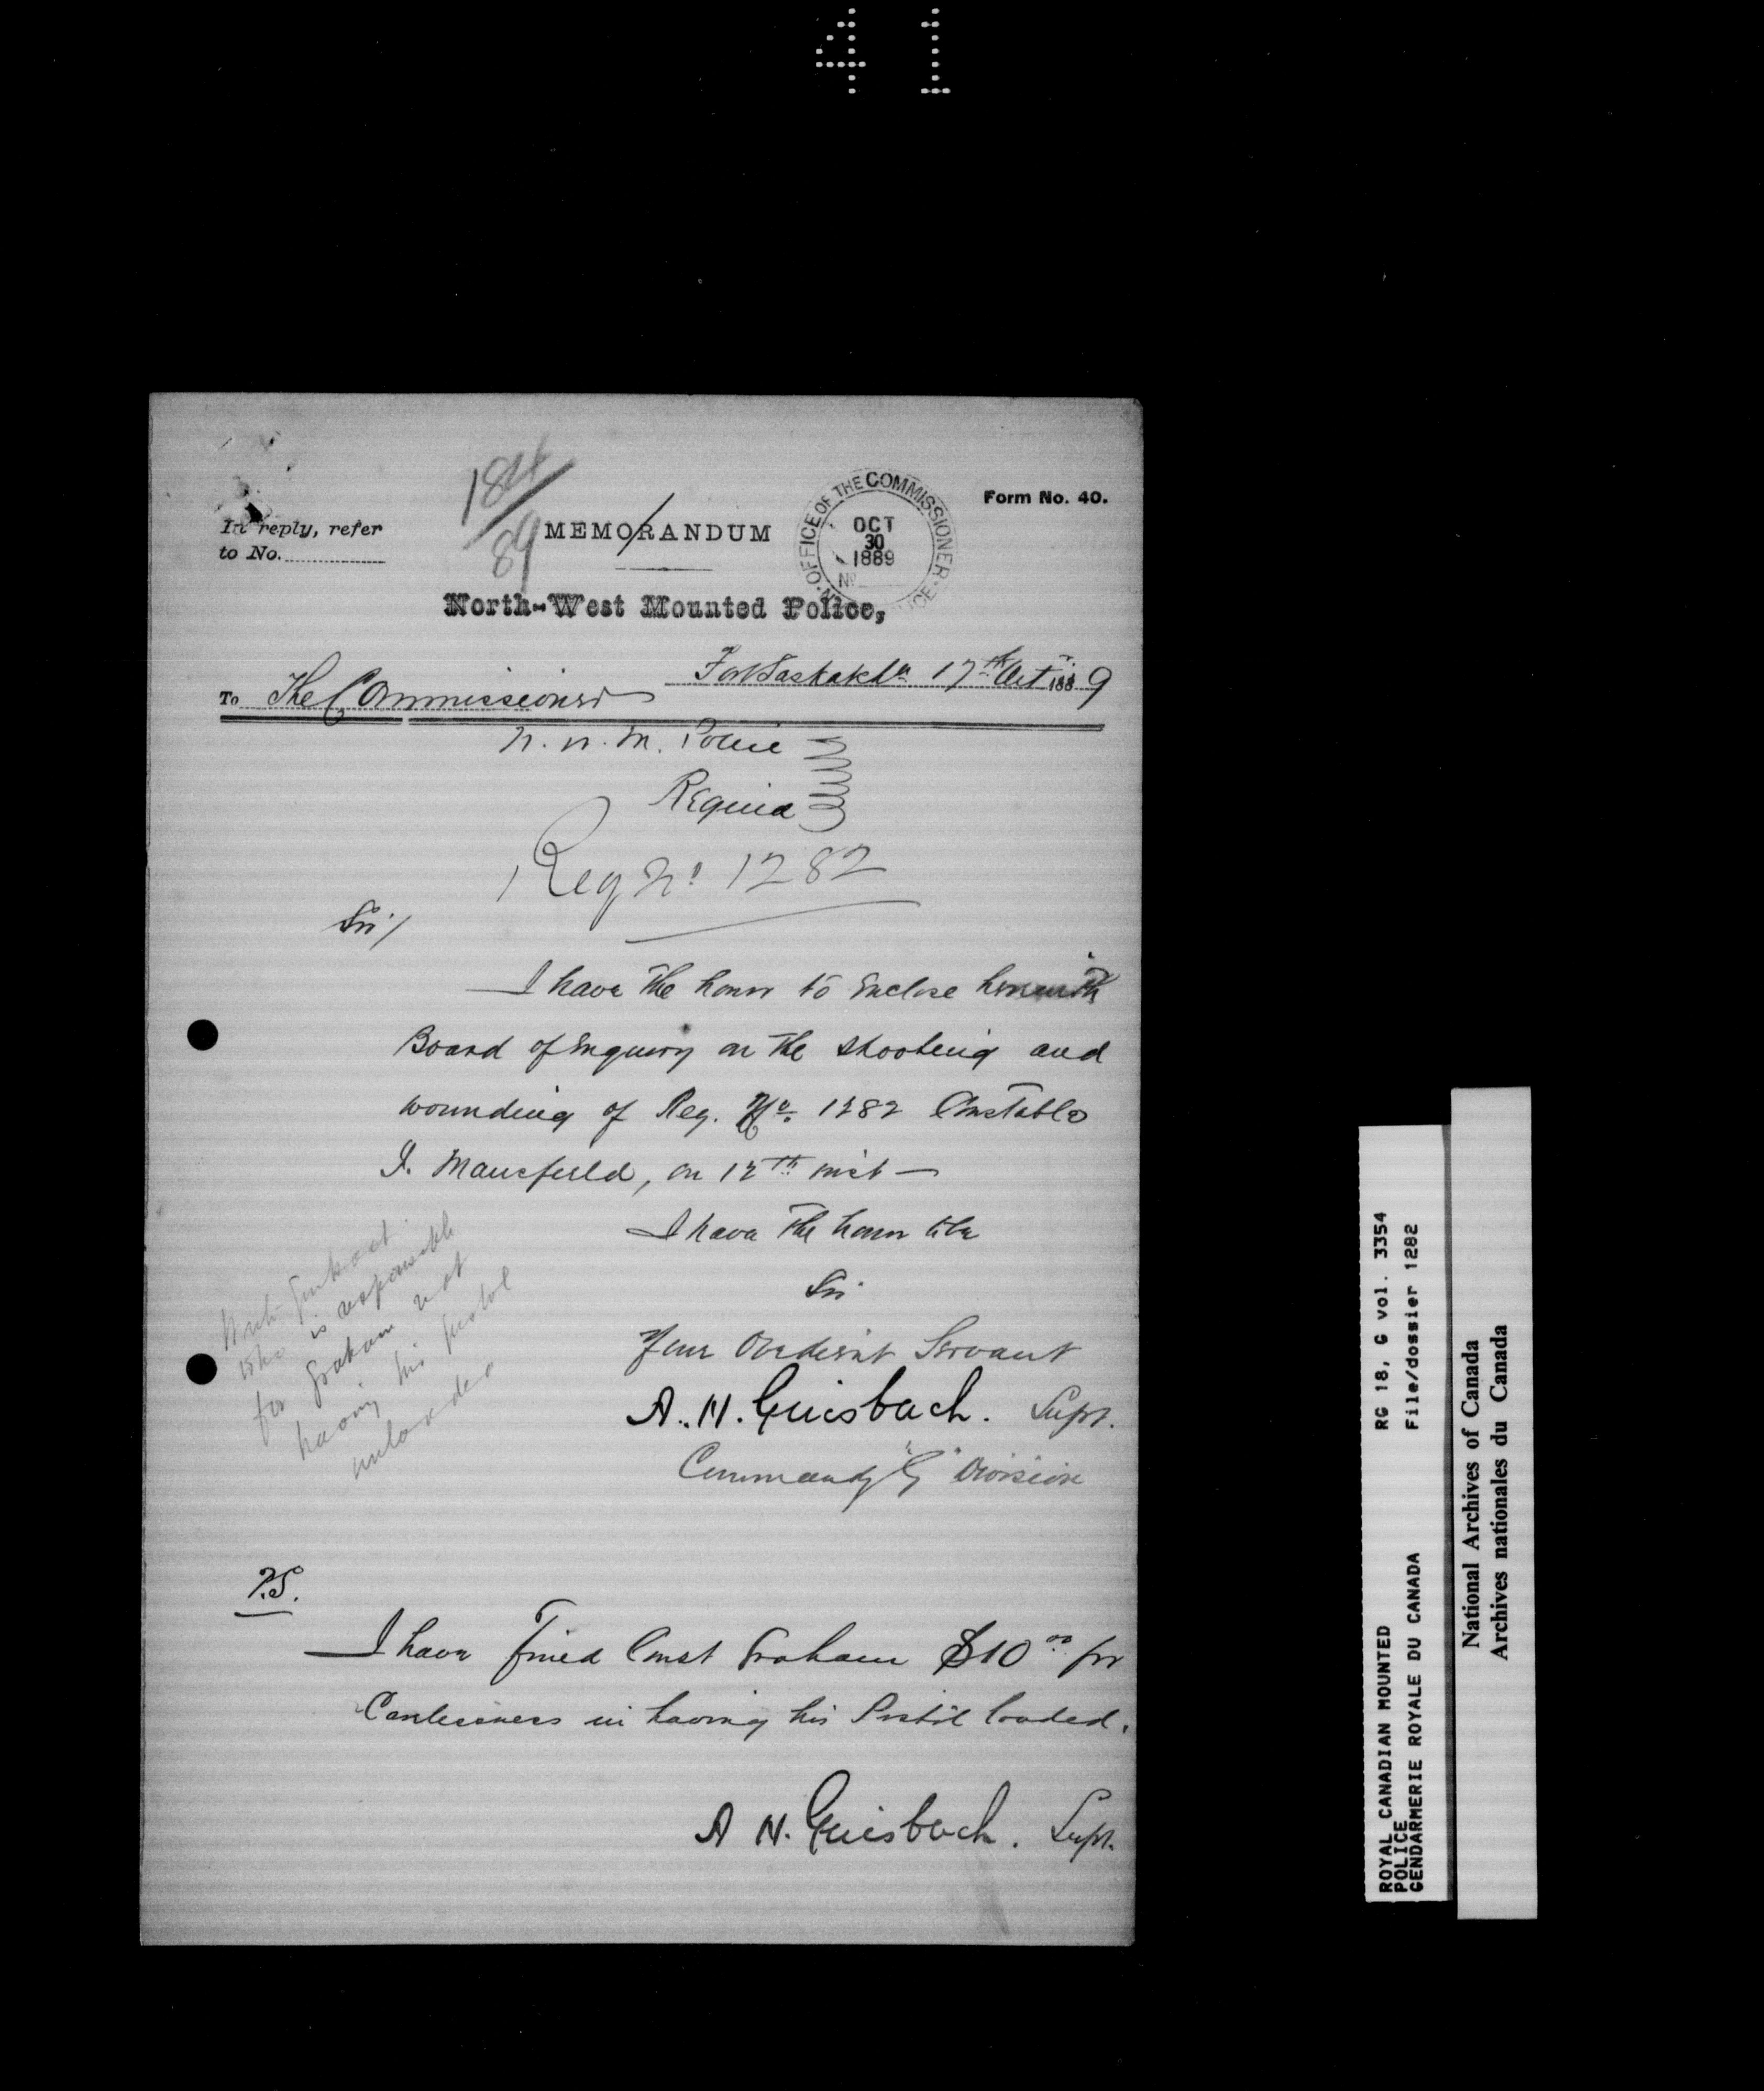 41
Form No. 40.
184/89
In reply, refer
to No.
MEMORANDUM
OFFICE OF THE COMMISSIONER
OCT
30
1889
No
North-West Mounted Police,
Fort Saskatch'n 17th Oct 1889
To The Commissioner
N. W. M. Police
Regina
Reg No 1282
Sir/
I have the honor to enclose herewith
Board of Enquiry on the shooting and
wounding of Reg. No. 1282 Constable
J. Mansfield, on 12th inst —
I have the honor to be
Sir
Your Obedient Servant
A. H. Griesbach. Supt.
Commandg "G" Division
who is responsible
for Graham not
having his pistol
unloaded
P.S.
I have fined Const Graham $10 00 for
Carelessness in having his Pistol loaded.
A H. Griesbach. Supt.
ROYAL CANADIAN MOUNTED
POLICE
GENDARMERIE ROYALE DU CANADA
RG 18, G vol. 3354
File/dossier 1282
National Archives of Canada
Archives nationales du Canada